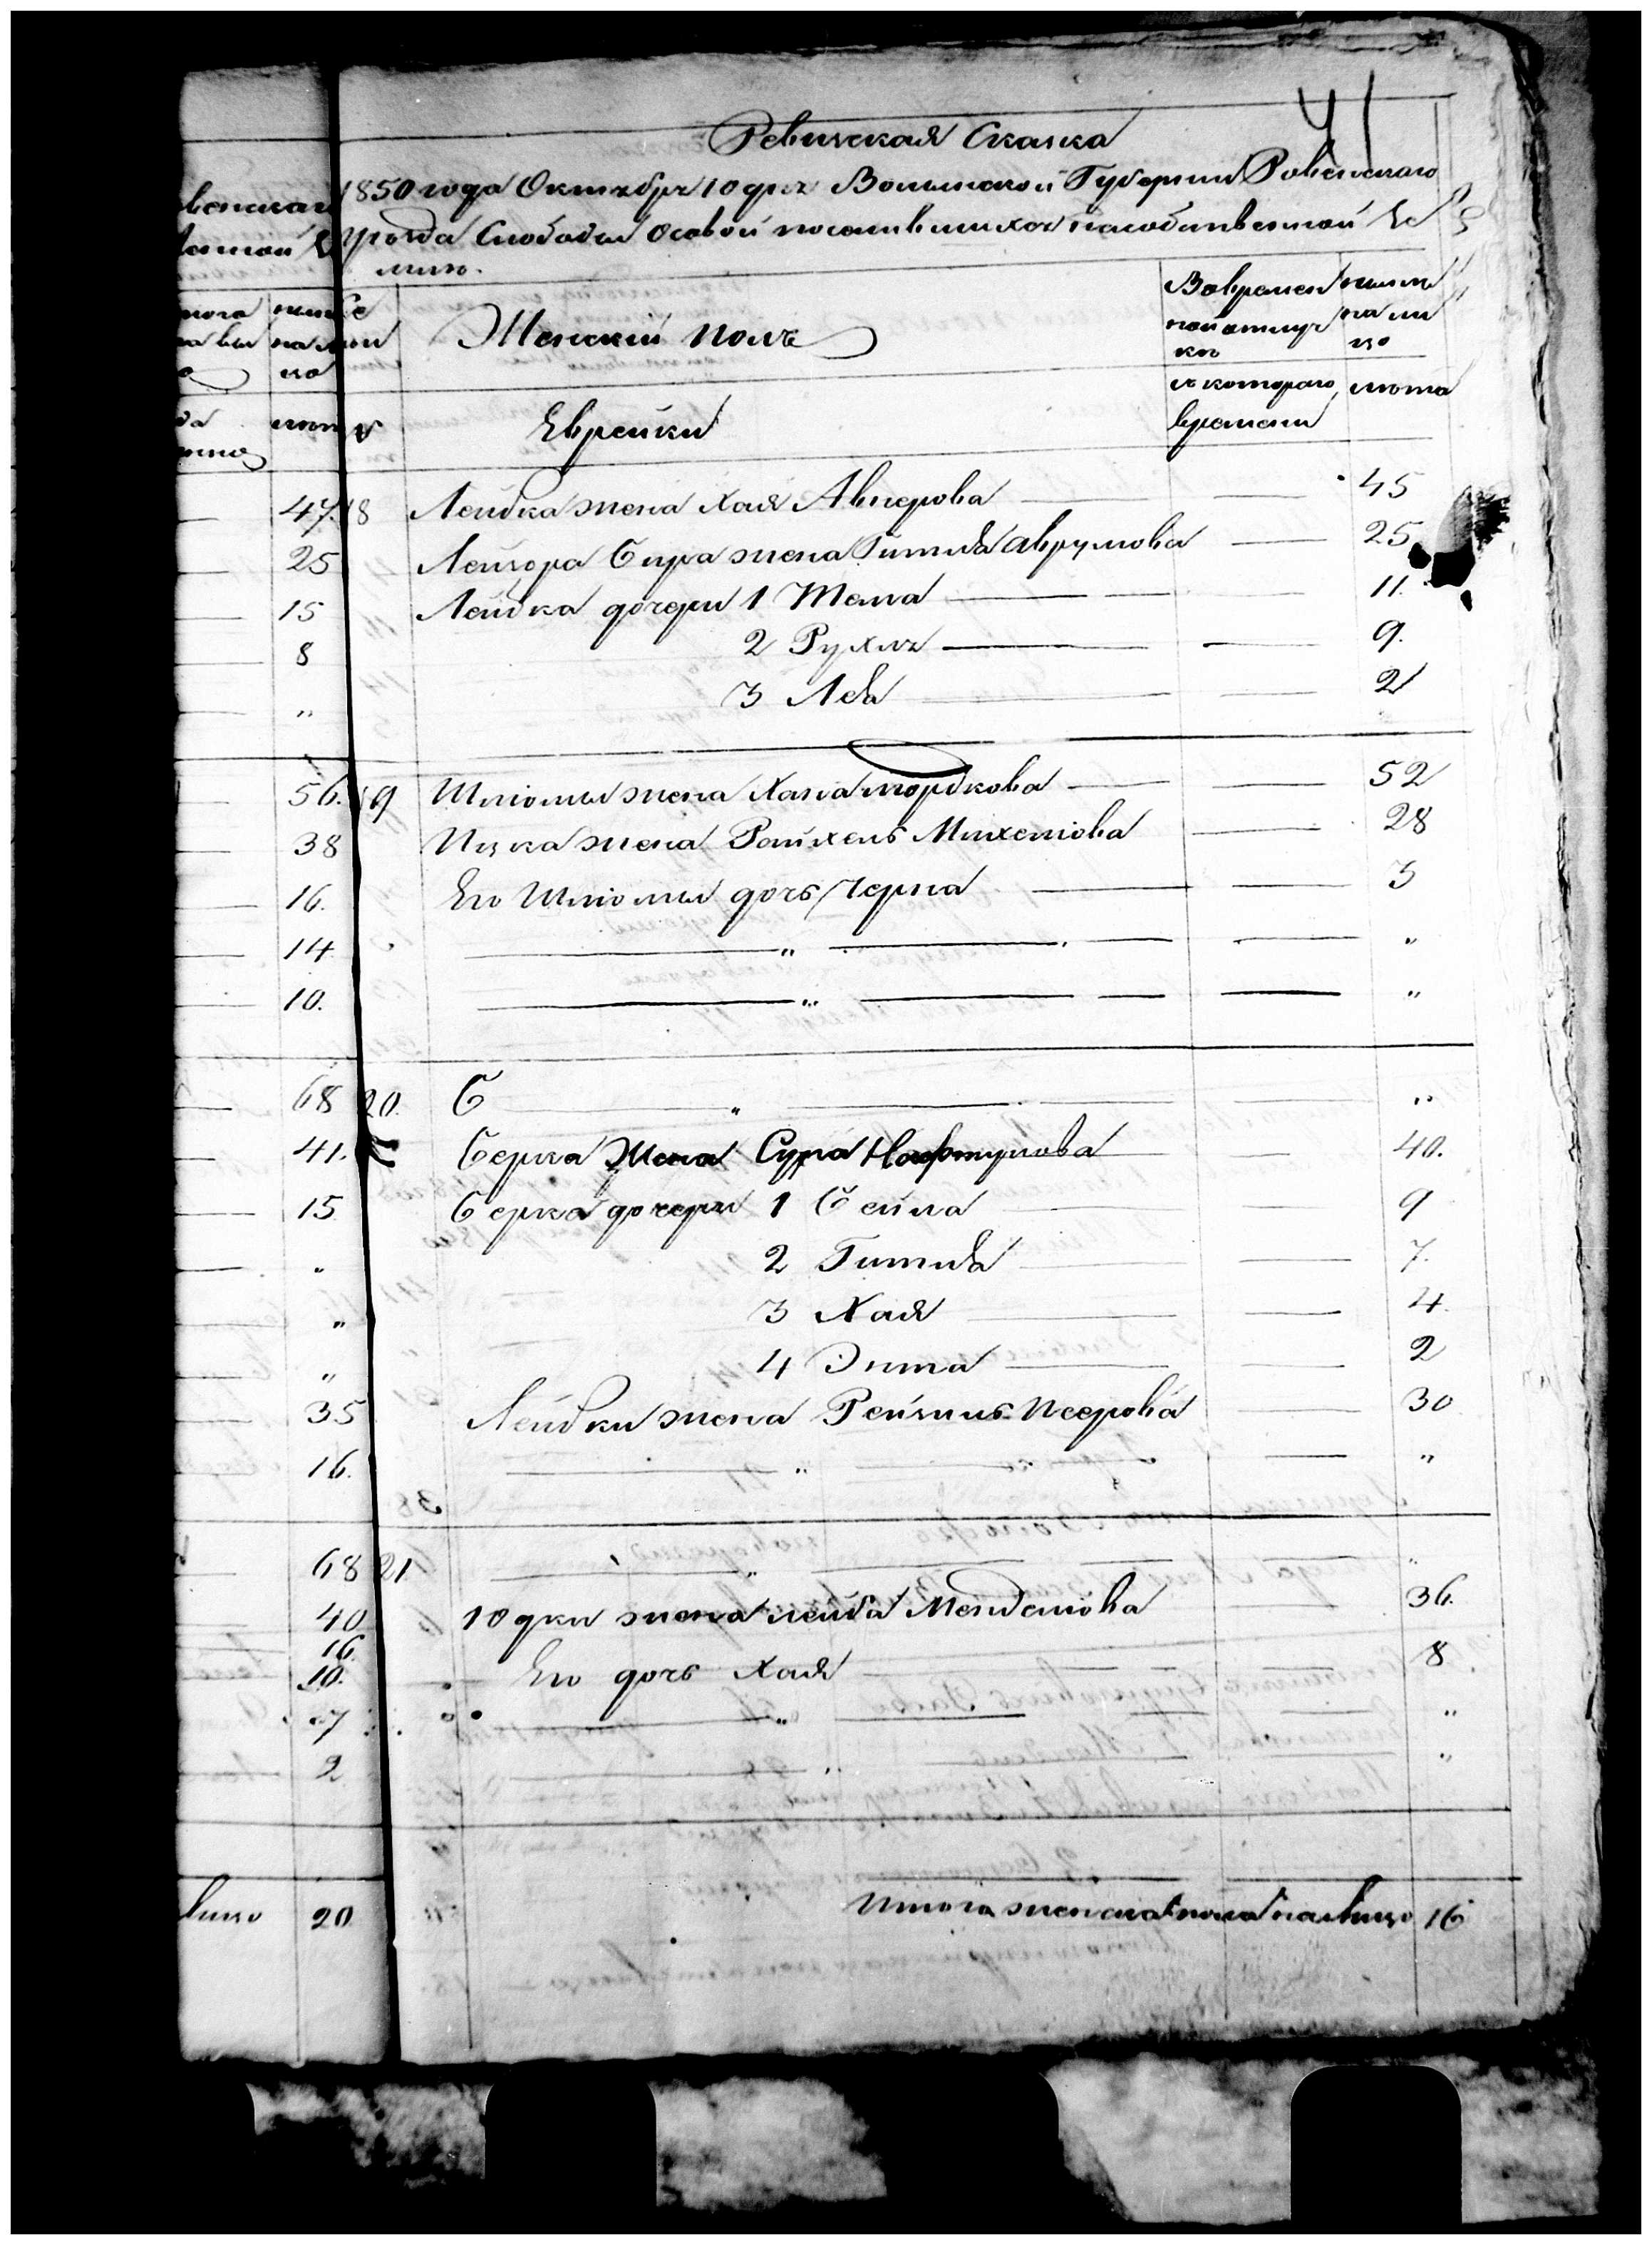 41
Ревижская Сказка
1850 года Октября 10 дня Волынской Губернии Ровенскаго
уезда Слободы Осовой поселившихся на собственной зе
мли.
Женский полъ
Во времен
ной отлуч
ке
ныне
на ли
цо
съ котораго
времени
лета
Еврейки
47. 18 Лейбка жена Хая Авнерова 45
25 Лейзора Сира жена Гитля Аврумова 25
15 Лейбка дочери 1 Шема 11.
8 2 Рухля 9.
" 3 Лея 2
56. 19 Шліомы жена Хана Мордкова 52
38 Ицка жена Райхель Михелiова 28
16. Его Шліомы дочь Черна 3
14 " "
10. " "
68 20. С " "
41. Берка жена Сура Нафтулова 40.
15 Берка дочери 1 Бейла 9
" 2 Гитля 7.
" 3 Хая 4
" 4 Энта 2
35 Лейбки жена Рейзль Исерова 30
16. " "
68 21. " "
40 Юдки жена Лейба Менделiова 36.
16
10. Его дочь Хая 8
7 " "
2 " "
лицо 20 Итого женска пола на лицо 16